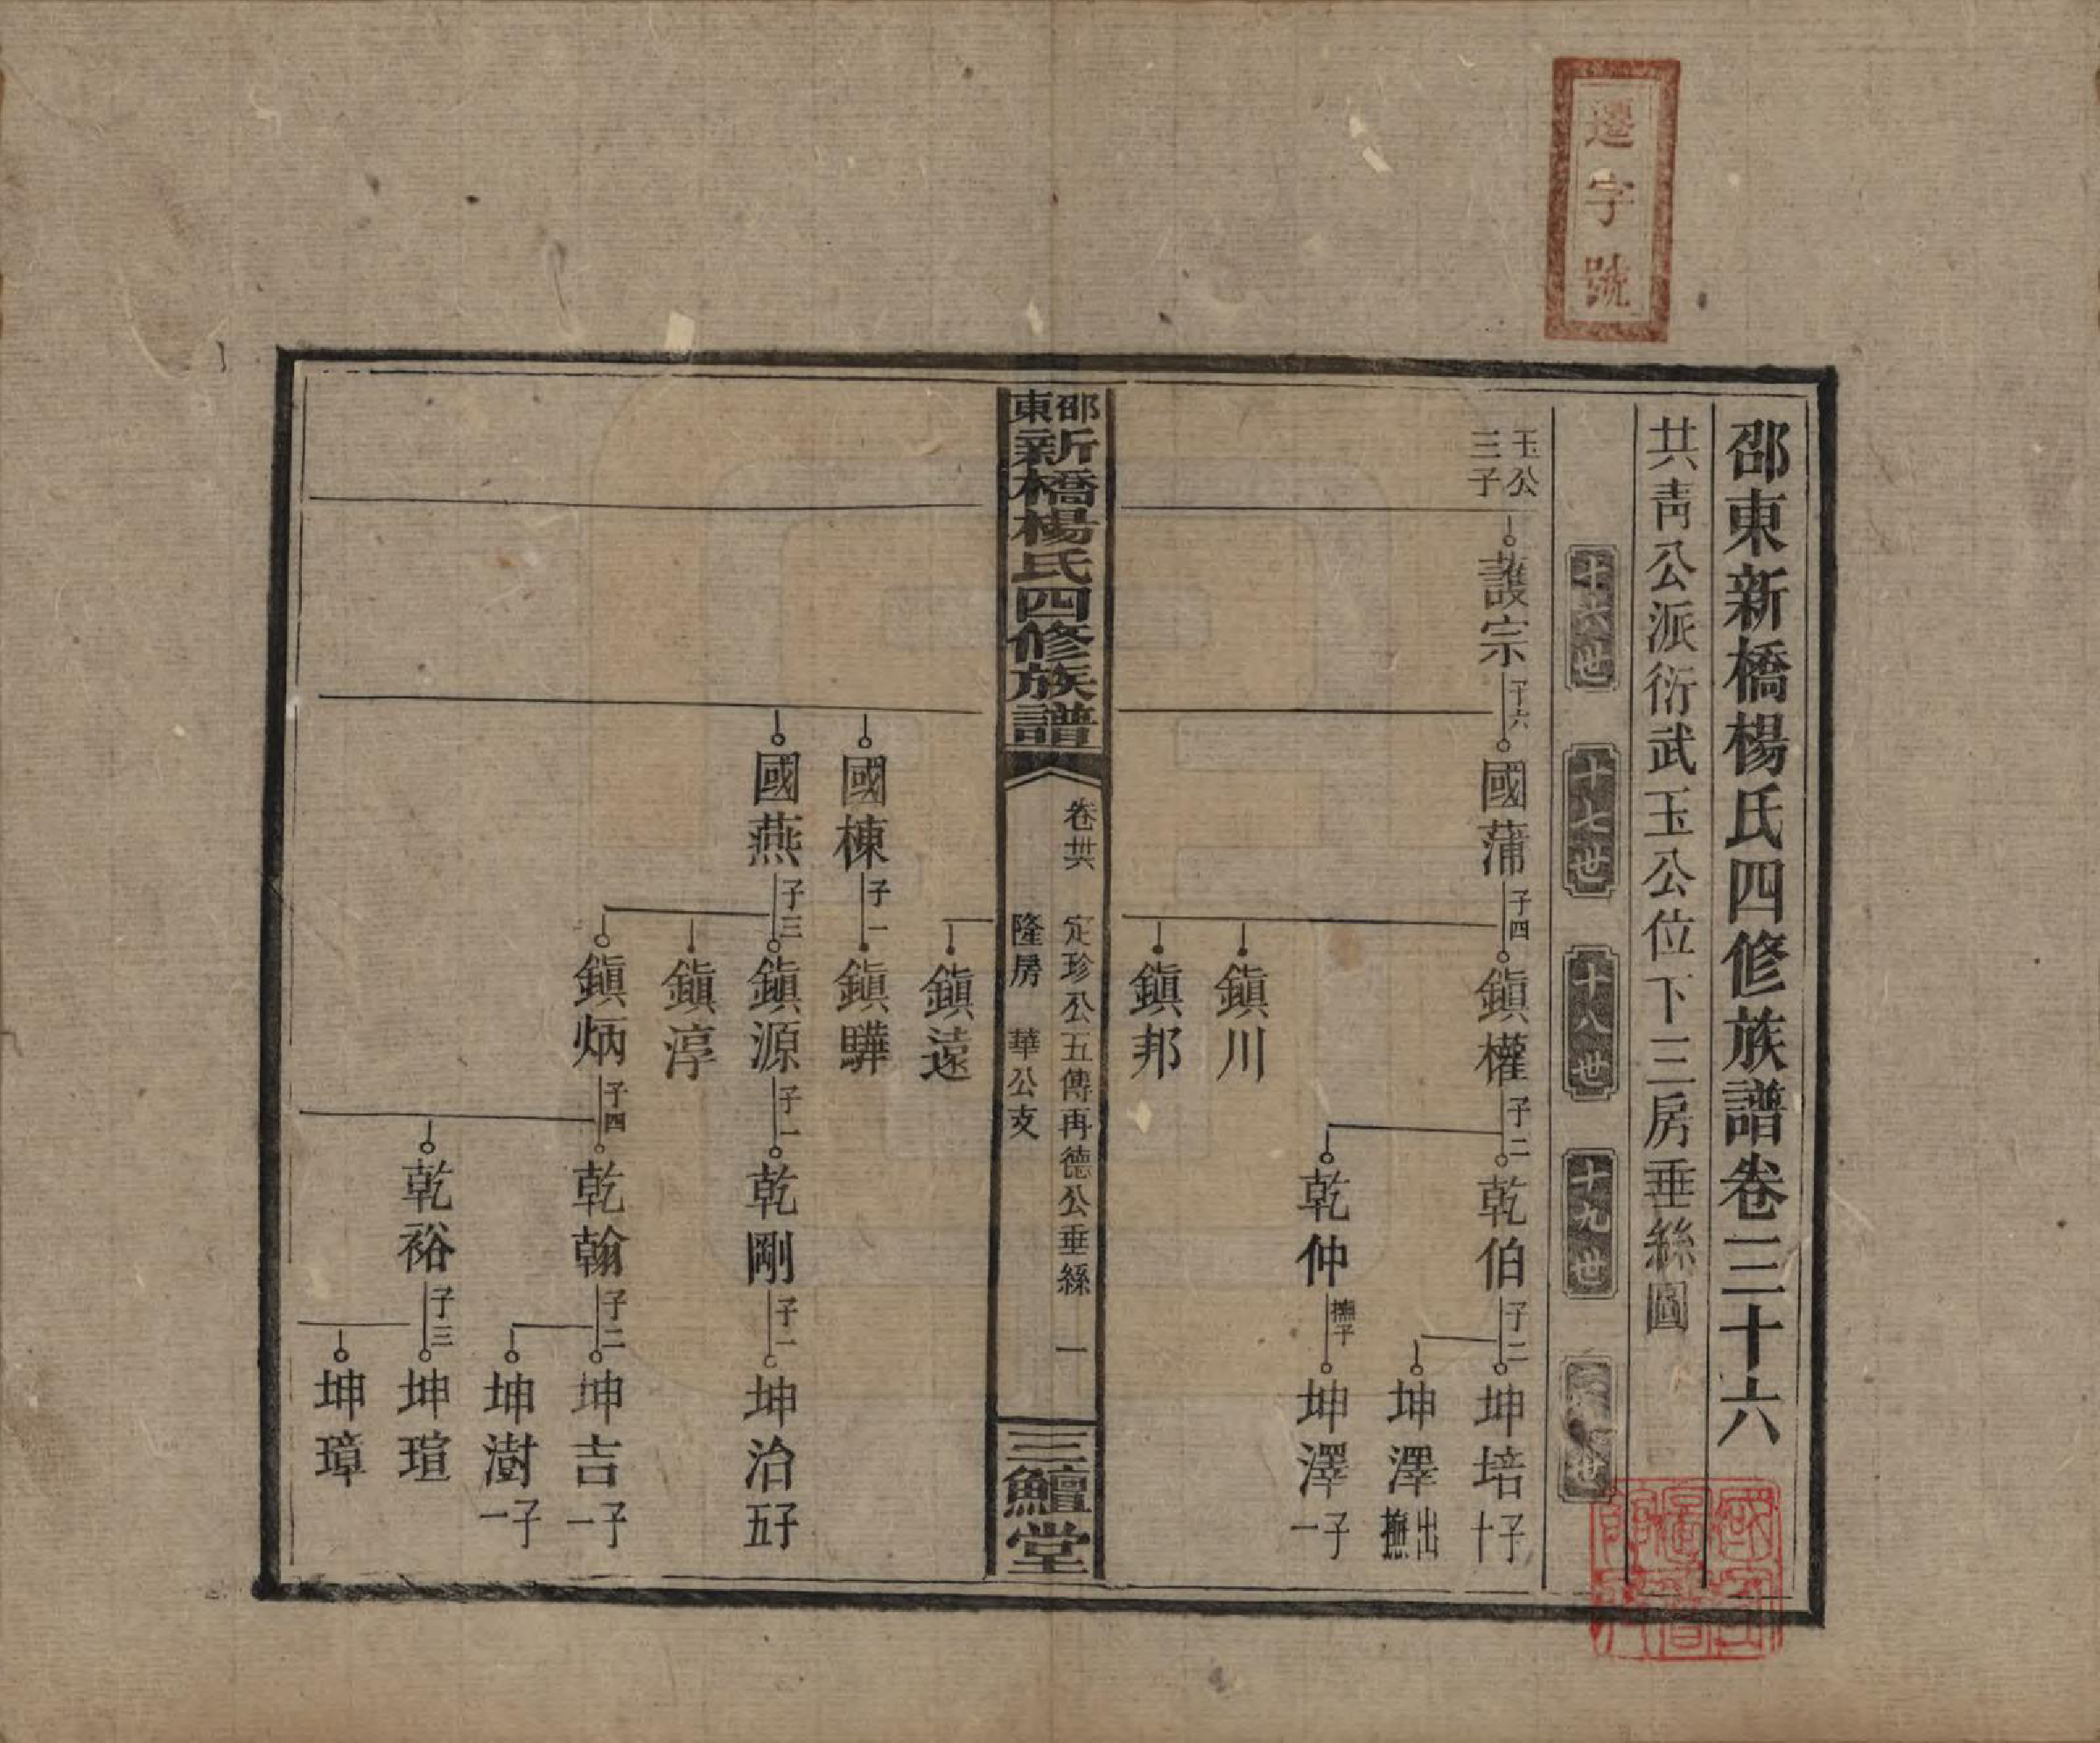 遷字號
邵東新橋楊氏四修族譜卷三十六
共靑公派衍武玉公位下三房垂絲圖
十六世
十七世
十八世
十九世
世
玉公三子
護宗
子六
國蒲
子四
鎭權
子二
乾伯
子二
坤培
十子
坤澤
出撫
乾仲
撫子
坤澤
一子
鎭川
鎭邦
邵東新橋楊氏四修族譜
卷卅六
定珍公五傳再德公垂絲
隆房 華公支
一
三鱣堂
鎭遠
國棟
子一
鎭驊
國燕
子三
鎭源
子一
乾剛
子一
坤治
五子
鎭淳
鎭炳
子四
乾翰
子二
坤吉
一子
坤樹
一子
乾裕
子三
坤瑄
坤璋